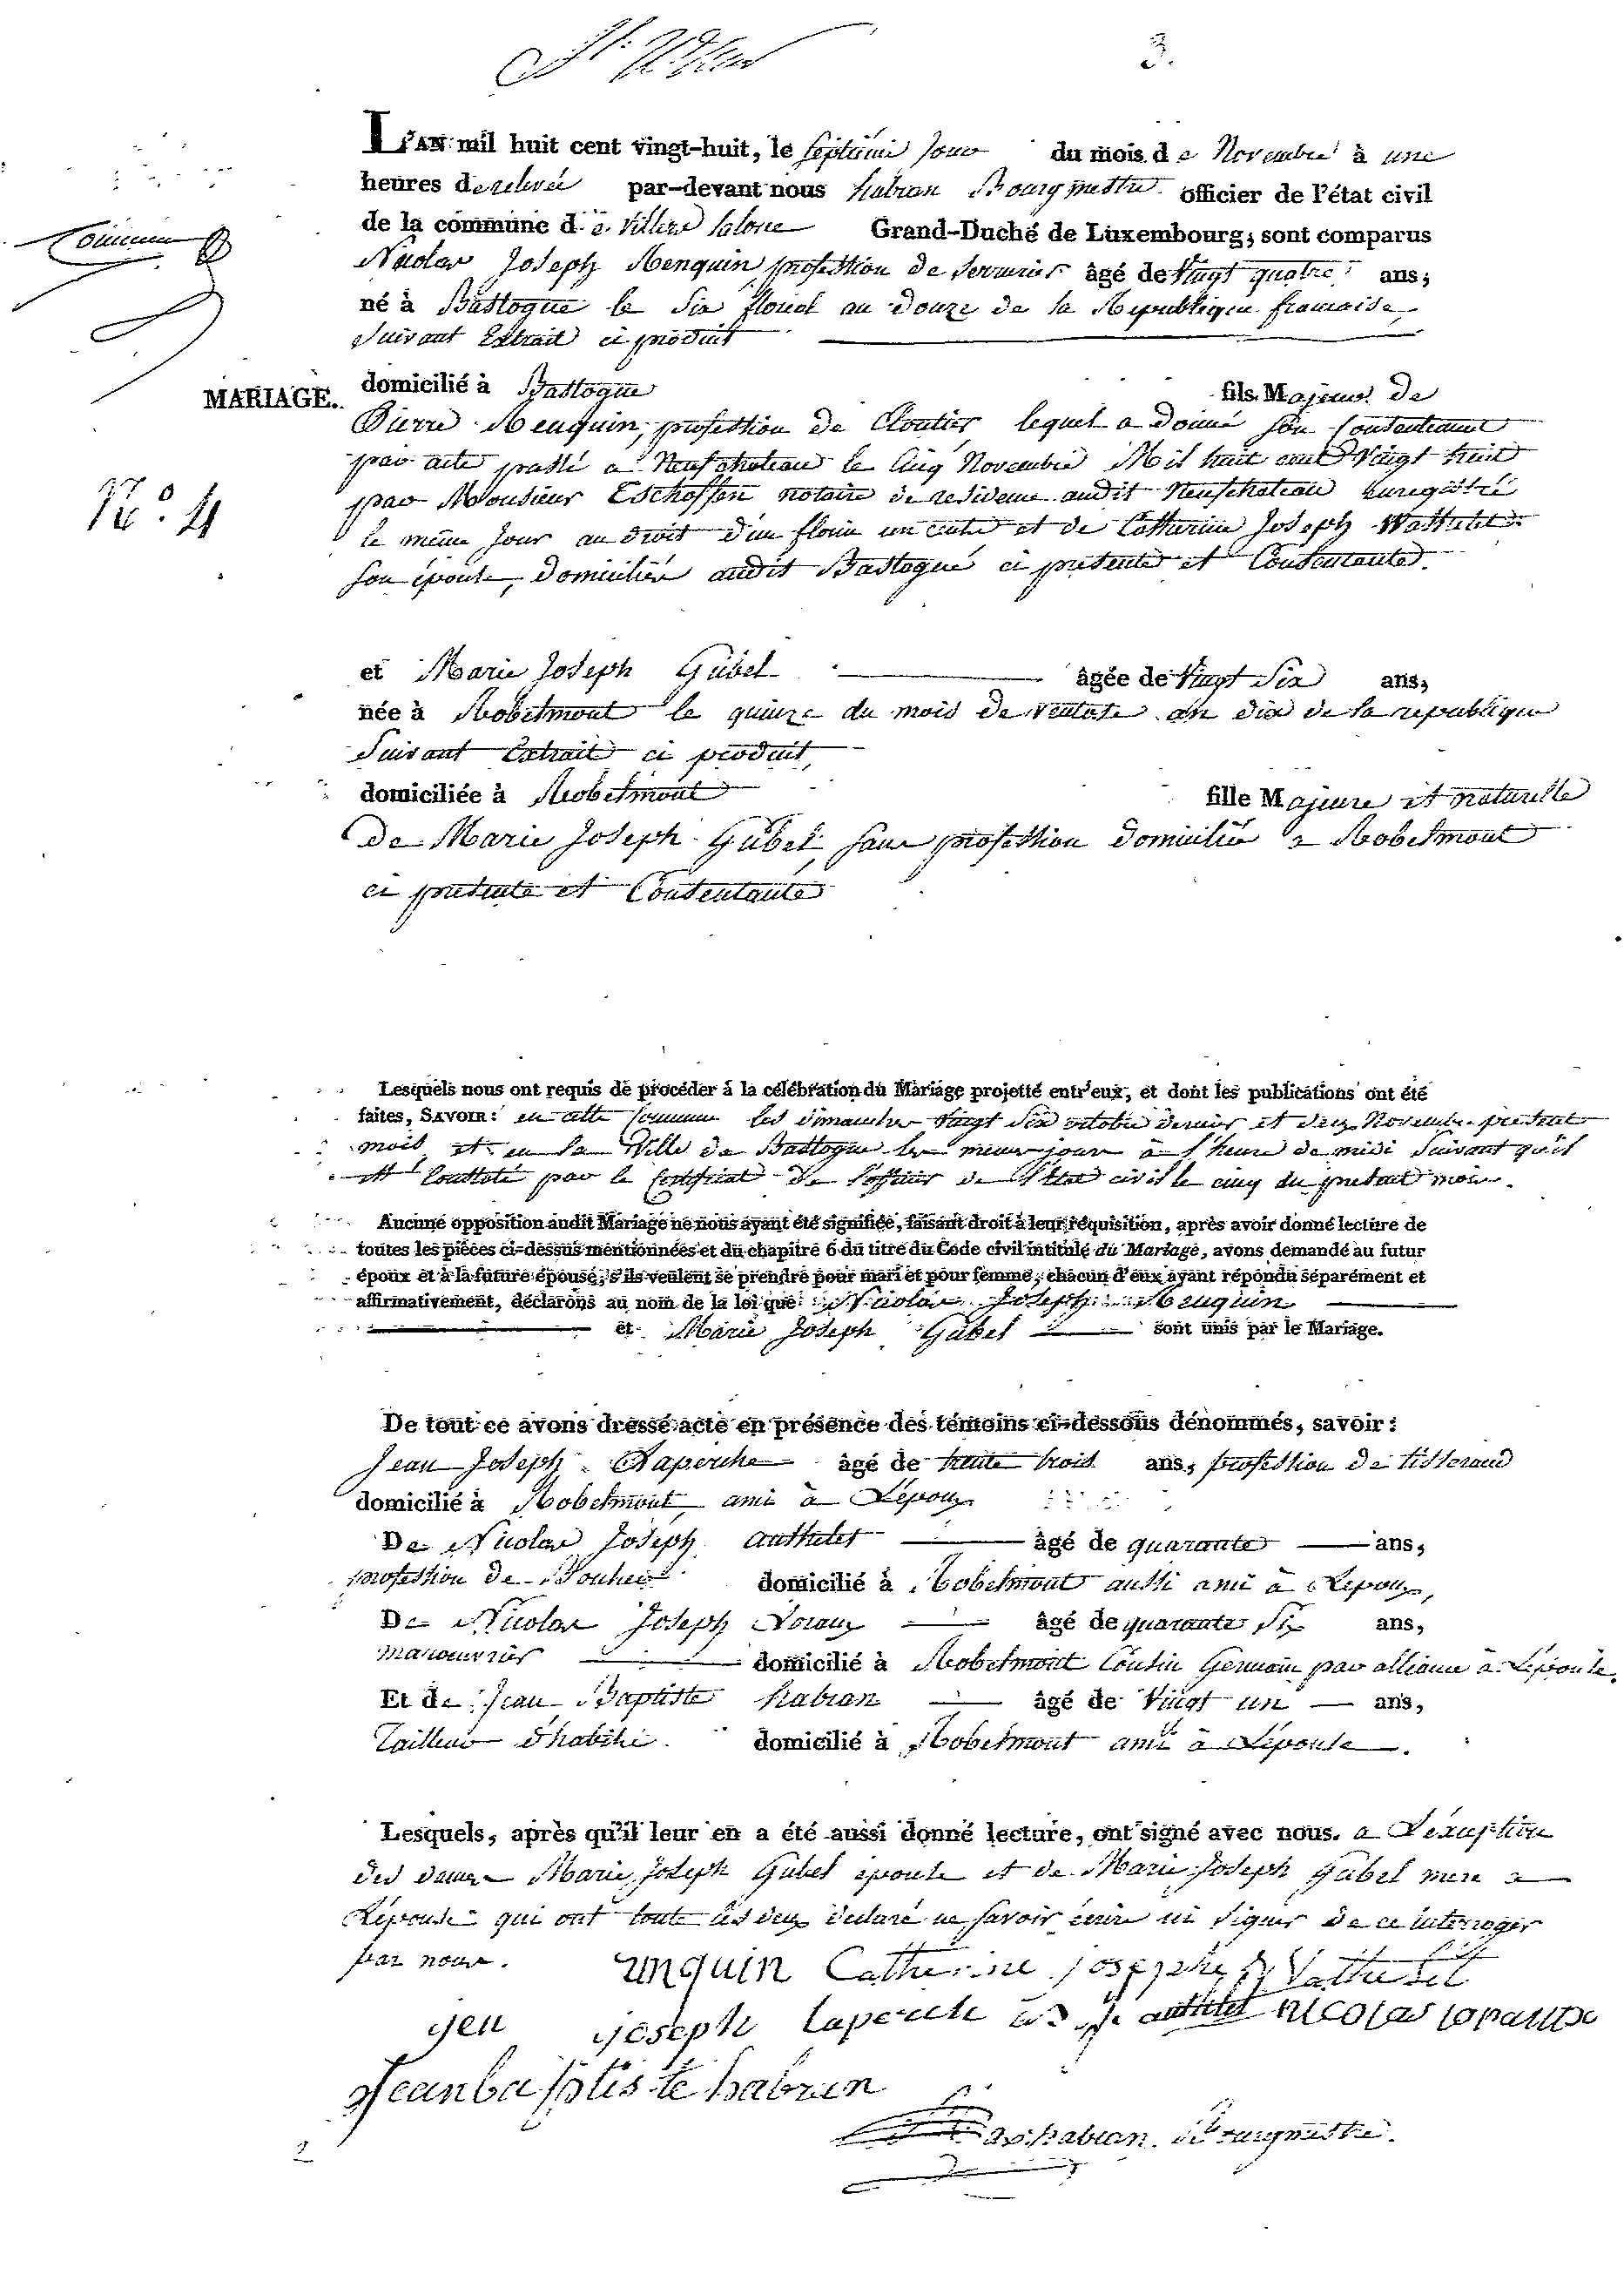 3.
L'AN mil huit cent vingt-huit, le septieme jour du mois de Novembre à une
heures de relevée par-devant nous habran Bourgmestre officier de l'état civil
de la commune de Grand-Duché de Luxembourg; sont comparus
Nicolas Joseph Henquin, profession de serrurier âgé de Vingt quatre ans;
né à Bastogne le Six floreal an douze de la Republique francaise,
Suivant Extrait ci produit
MARIAGE. domicilié à Bastogne fils Majeur de
Pierre Henquin, profession de Cloutier lequel a donné son Consentement
par acte passé a Neufchateau le Cinq Novembre Mil huit cent Vingt huit
No. 4
par Monsieur Eschoffen notaire de residence audit Neufchateau enregistré
le même jour au droit d'un florin un cents et de Catharine Joseph Wathelet
son épouse, domiciliée audit Bastogne ci presente et Consentante.
et Marie Joseph Gübel âgée de Vingt Six ans,
née à Robelmont le quinze du mois de Ventose an dix de la republique
Suivant Extrait ci produit,
domiciliée à Robelmont fille Majeure et naturelle
de Marie Joseph Gübel, sans profession domiciliée a Robelmont
ci presente et Consentante
Lesquels nous ont requis de procéder à la célébration du Mariage projetté entr'eux, et dont les publications ont été
faites, SAVOIR: en cette commune les dimanches Vingt Six octobre dernier et deux Novembre present
mois et en la Ville de Bastogne les meme jours à l'heure de midi Suivant qu'il
est Constaté par le Certificat de l'officier de l'Etat civil le cinq du present mois.
Aucune opposition audit Mariage ne nous ayant été signifiée, faisant droit à leur réquisition, après avoir donné lecture de
toutes les pièces ci-dessus mentionnées et du chapitre 6 du titre du Code civil intitulé du Mariage, avons demandé au futur
époux et à la future épouse, s'ils veulent se prendre pour mari et pour femme; chacun d'eux ayant répondu séparément et
affirmativement, déclarons au nom de la loi que Nicolas Joseph Henquin
et Marie Joseph Gübel sont unis par le Mariage.
De tout ce avons dressé acte en présence des témoins ci-dessous dénommés, savoir:
Jean Joseph Laperche âgé de trente trois ans, profession de tisserand
domicilié à Robelmont, ami à L'époux
De Nicolas Joseph Authelet âgé de quarante ans,
profession de domicilié à Robelmont aussi ami à L'epoux,
De Nicolas Joseph Noraux âgé de quarante Six ans,
manoeuvrier domicilié à Robelmont Cousin Germain par alliance à L'épouse,
Et de Jean Baptiste habran âgé de Vingt un ans,
Tailleur d'habits domicilié à Robelmont ami à L'épouse.
Lesquels, après qu'il leur en a été aussi donné lecture, ont signé avec nous. a L'exception
des dames Marie Joseph Gübel épouse et de Marie Joseph Gübel mere a
L'épouse qui ont toute les deux declaré ne savoir écrire ni signer de ce interroger
par nous. Catherine josephe Wathelet
jeu joseph Laperche authelet nicolas
Jean baptiste habran
habran Bourgmestre.
2